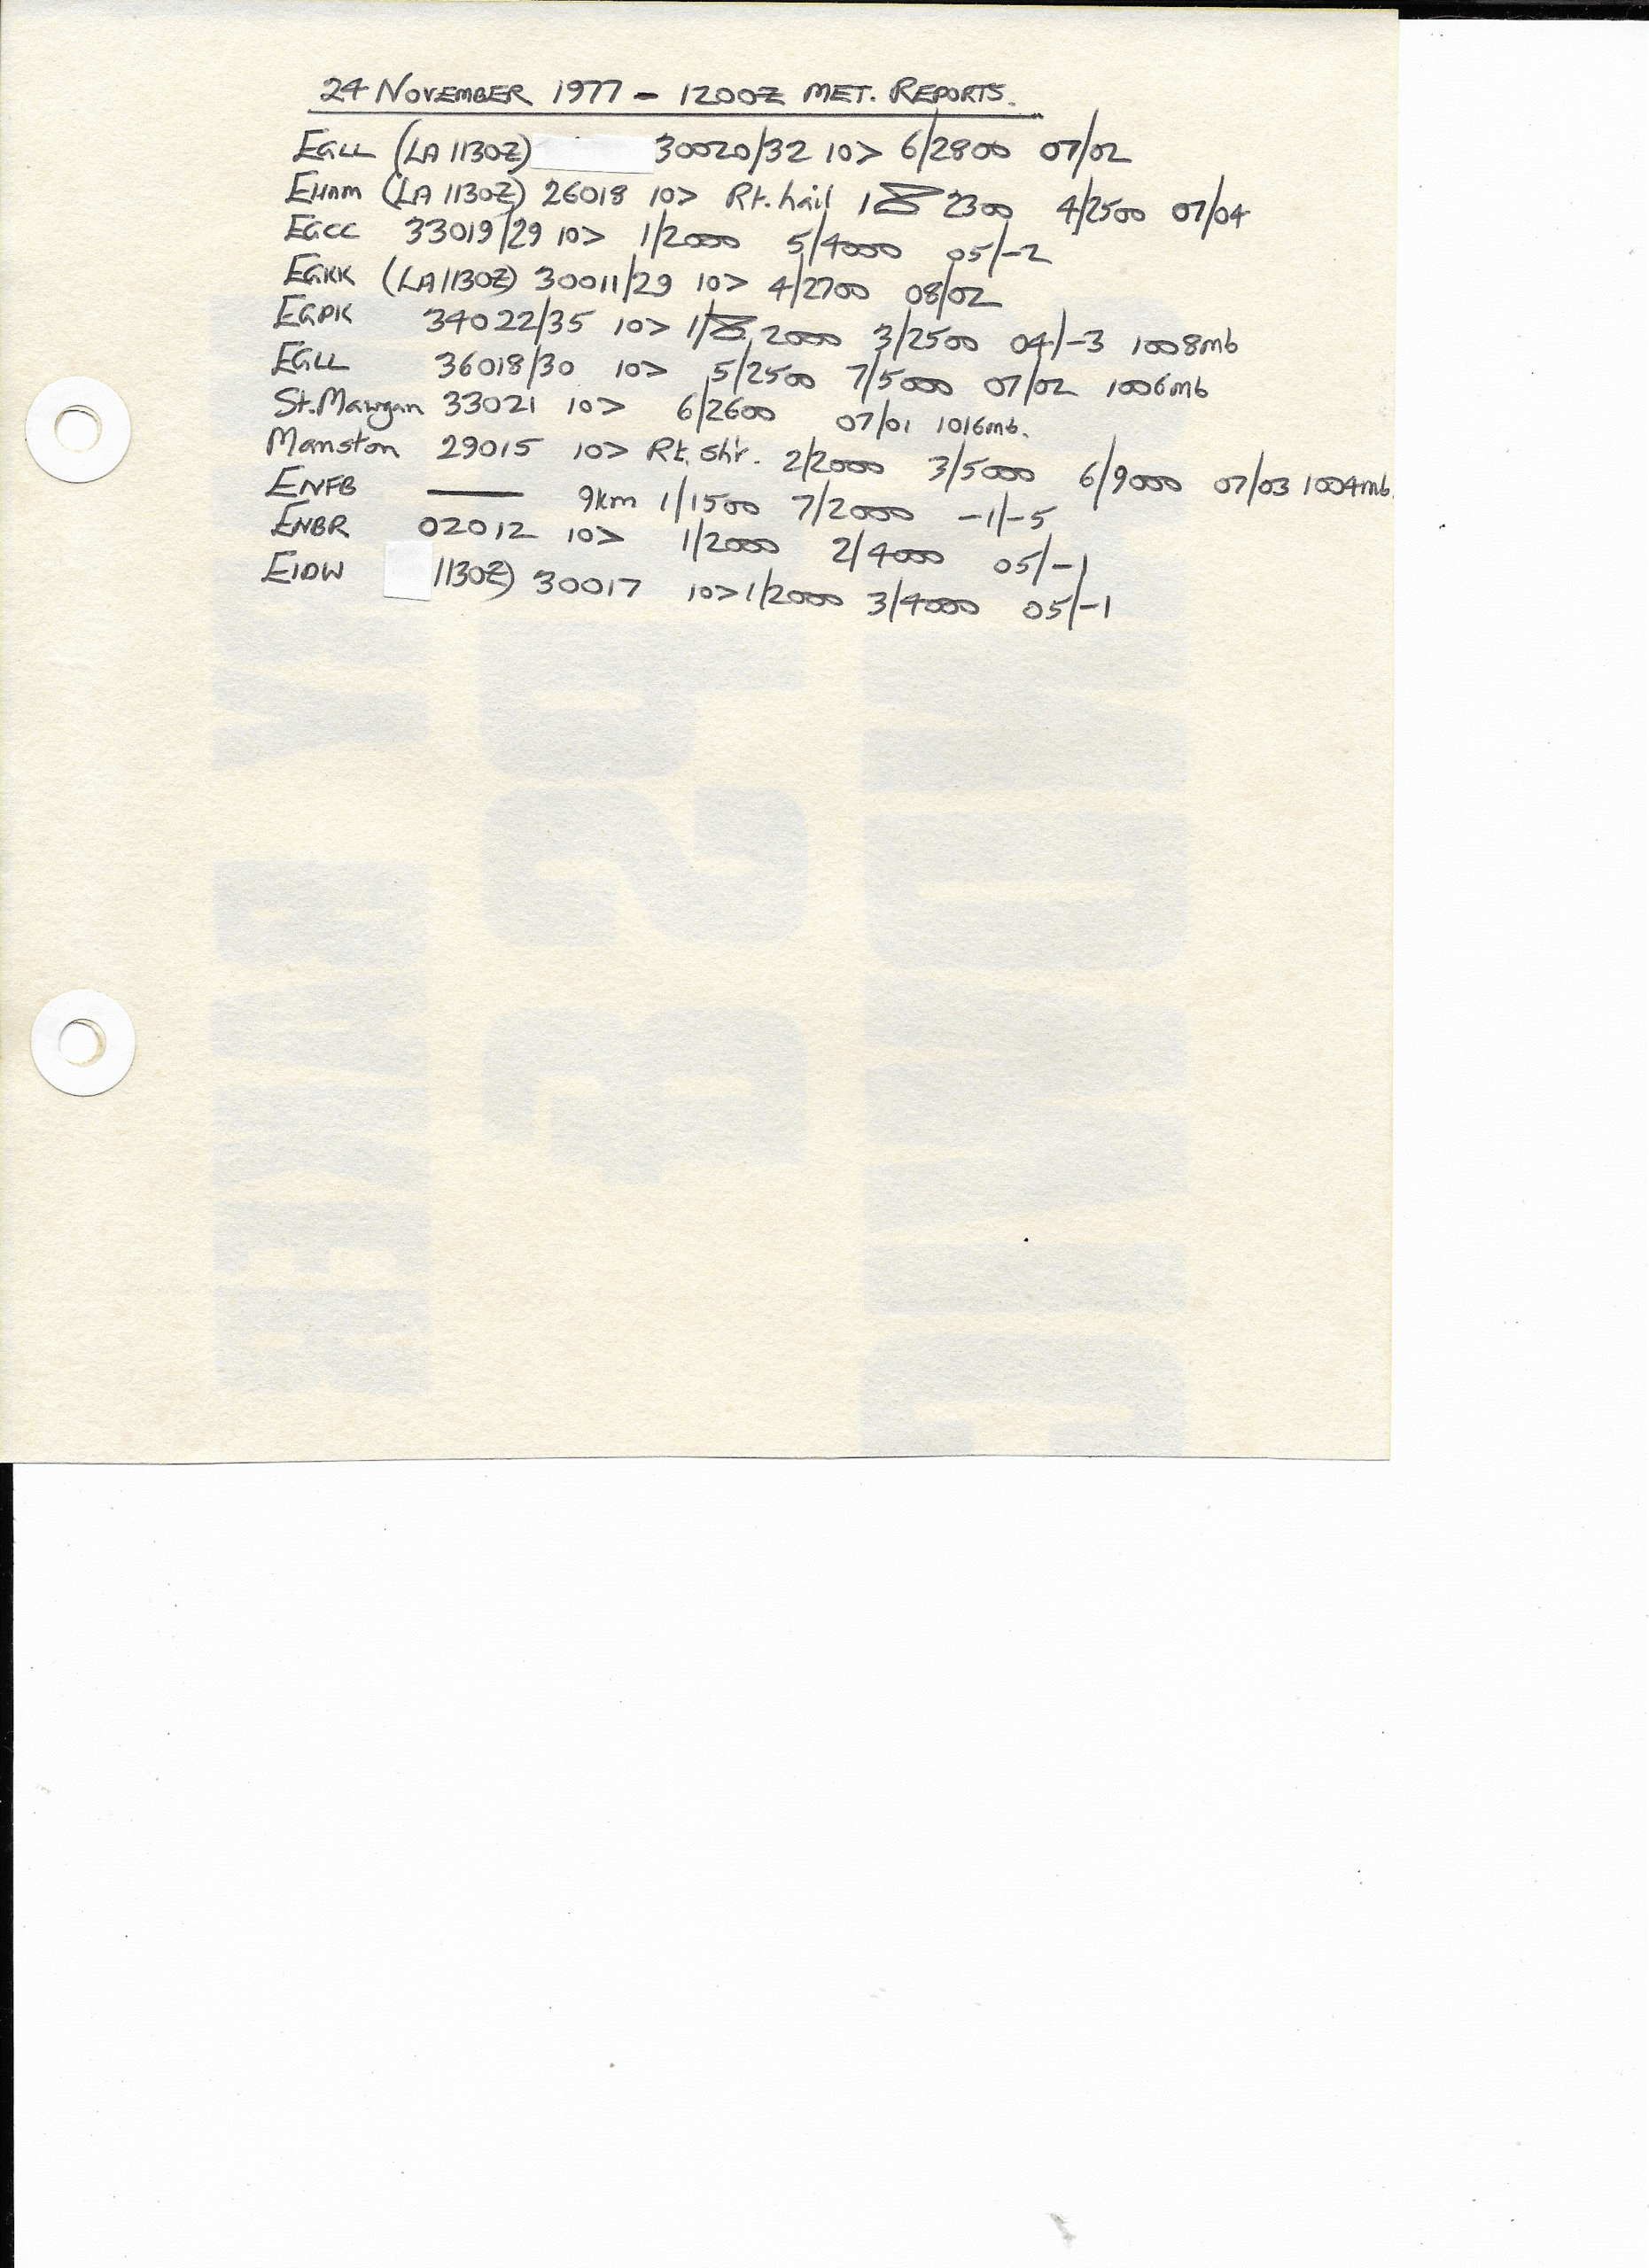 24 NOVEMBER 1977 - 1200Z MET. REPORTS.
EGLL (LA 1130Z) 30020/32 10> 6/2800 07/02
EHAM (LA 1130Z) 26018 10> Rt. hail 1 2300 4/2500 07/04
EGCC 33019/29 10> 1/2000 5/4000 05/-2
EGKK (LA 1130Z) 30011/29 10> 4/2700 08/02
EGPK 34022/35 10> 1/ 2000 3/2500 04/-3 1008mb
EGLL 36018/30 10> 5/2500 7/5000 07/02 1006mb
St. Mawgan 33021 10> 6/2600 07/01 1016mb.
Manston 29015 10> Rt. shr. 2/2000 3/5000 6/9000 07/03 1004mb.
ENFB — 9km 1/1500 7/2000 -1/-5
ENBR 02012 10> 1/2000 2/4000 05/-1
EIDW 1130Z) 30017 10> 1/2000 3/4000 05/-1